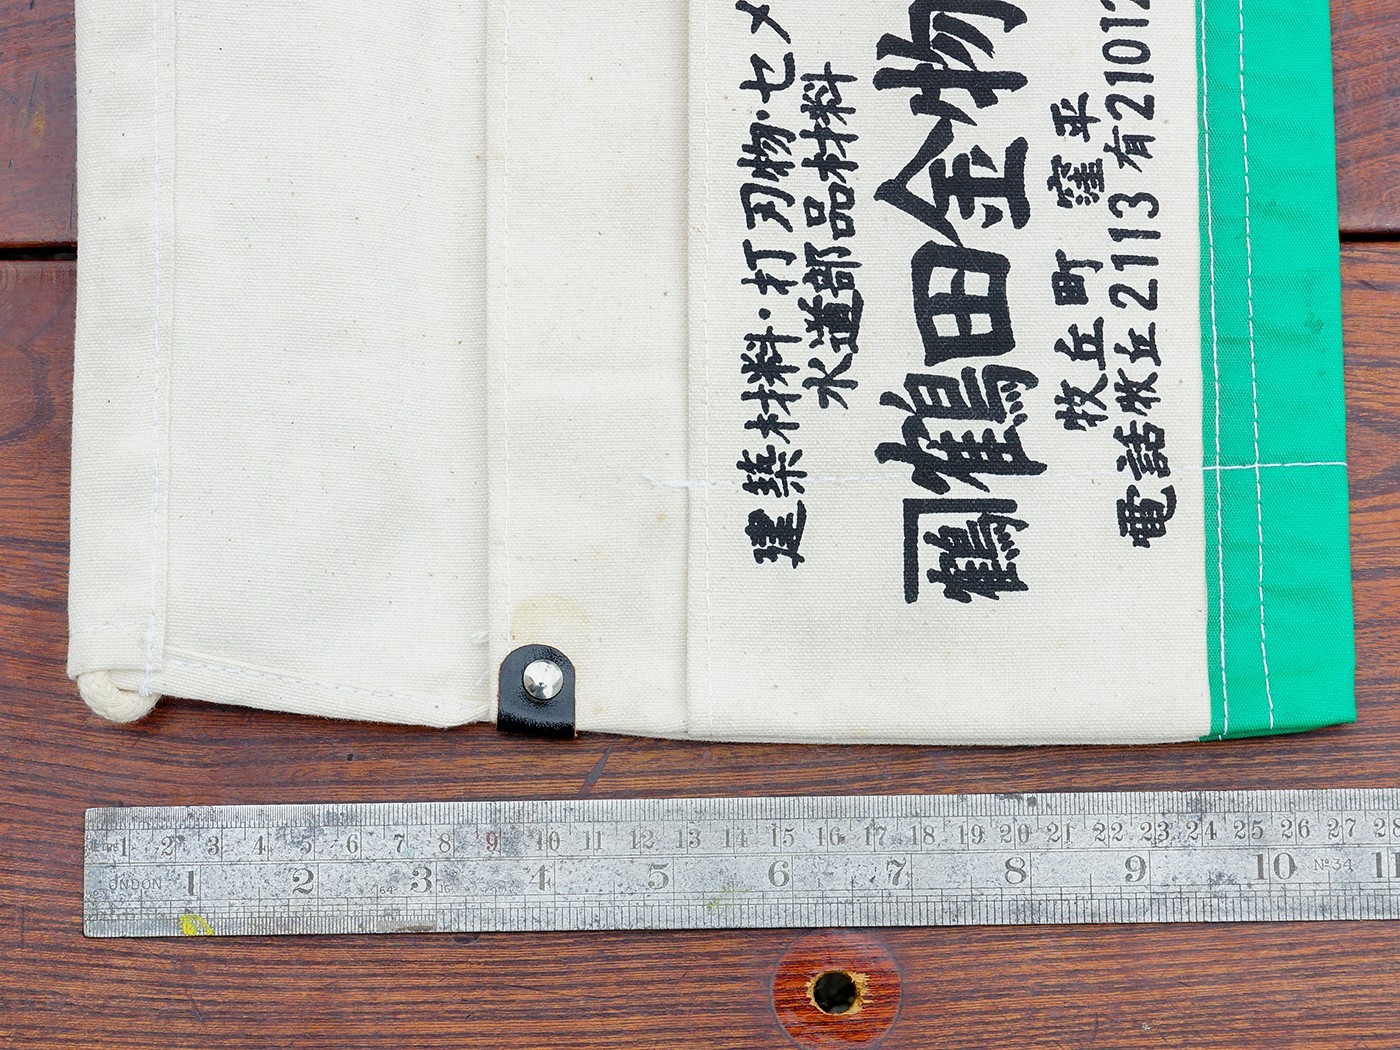 建築材料・打刃物・セメ
水道部品材料
鶴 鶴田金物
牧丘町窪平
電話牧丘2113有21012
1 2 3 4 5 6 7 8 9 10 11 12 13 14 15 16 17 18 19 20 21 22 23 24 25 26 27 28
ONDON 1 2 64 3 16 4 5 6 7 8 9 10 Nº34 11